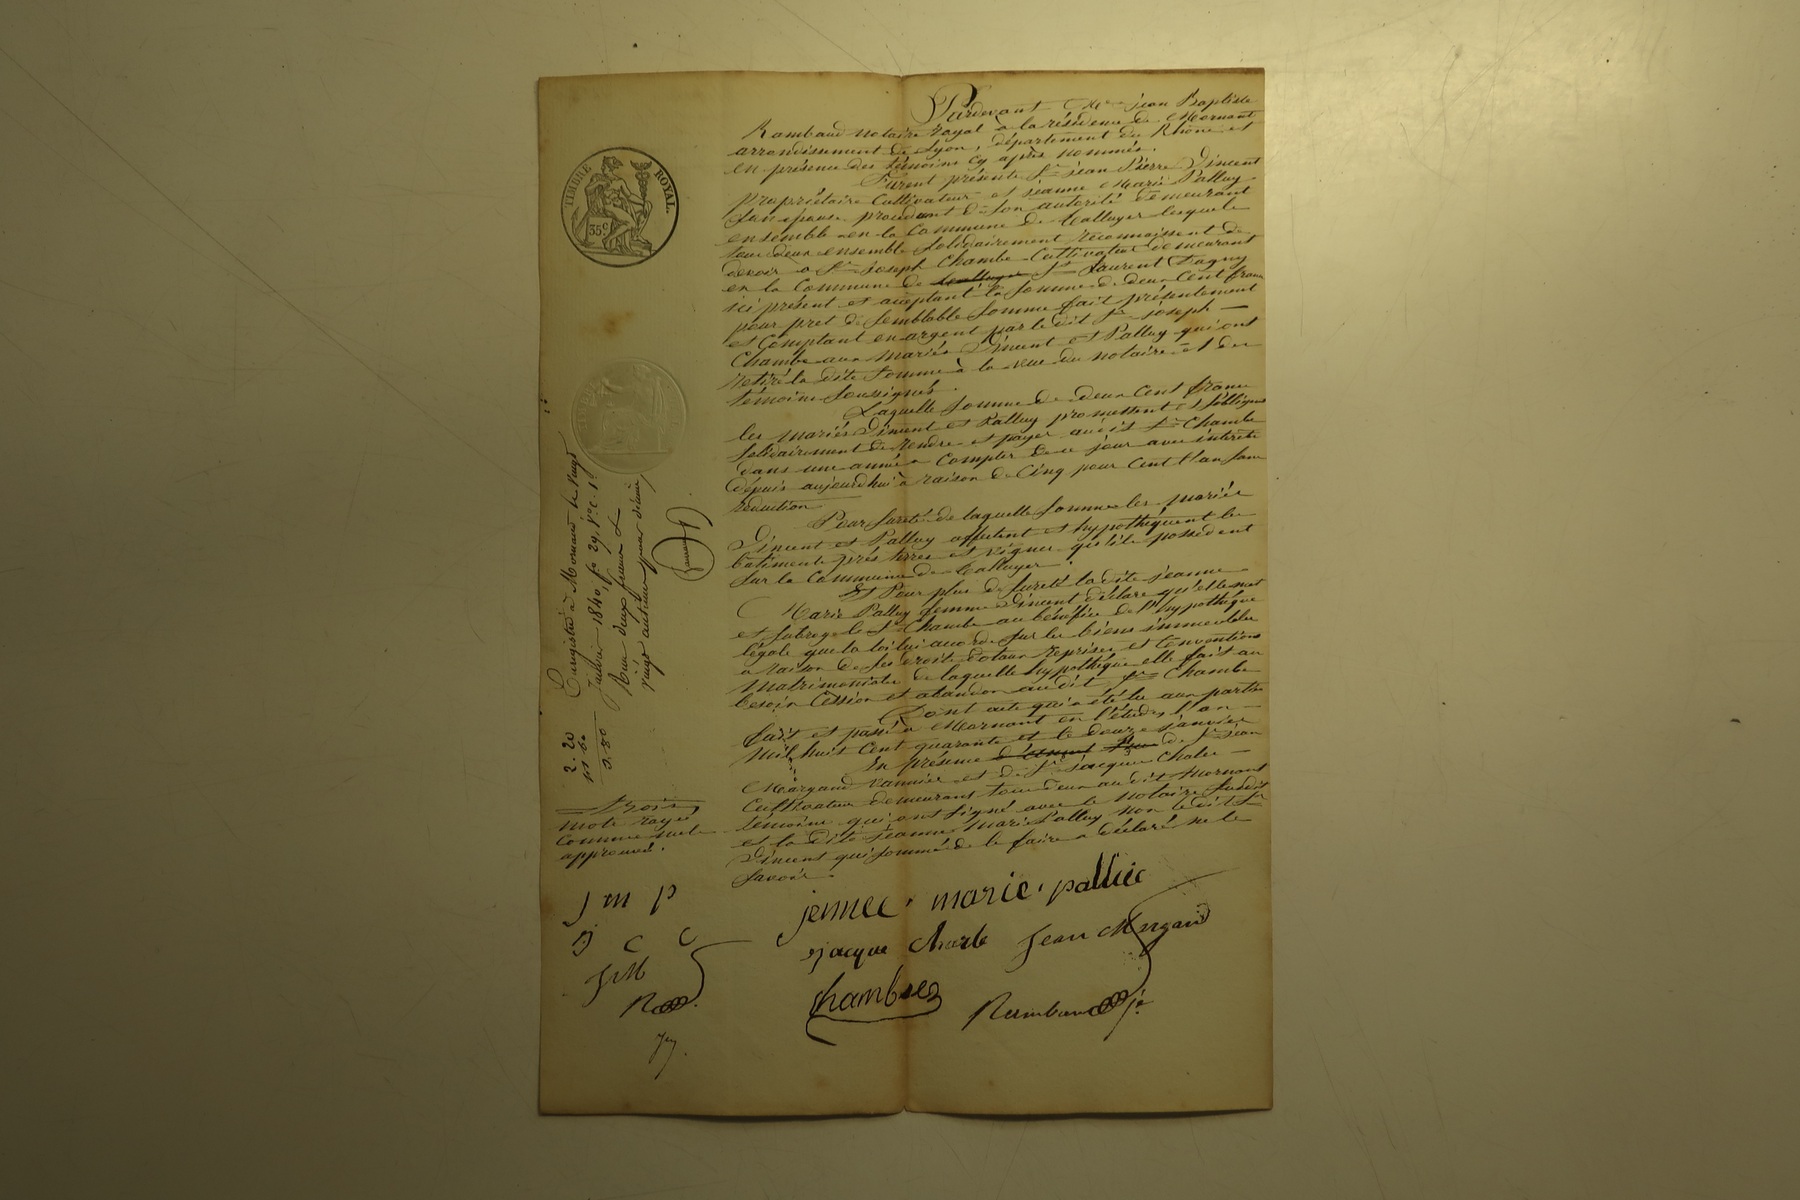 TIMBRE ROYAL.
35 c.
Pardevant Me jean Baptiste
Rambaud notaire royal à la résidence de Mornant
arrondissement de Lyon, département du Rhône et
en présence des témoins cy après nommés.
Furent présents Sr jean Pierre Vincent
propriétaire Cultivateur et jeanne Marie Palluy
son épouse procédant de son autorité demeurant
ensemble en la Commune de Talluyer lesquels
tous deux ensemble Solidairement reconnaissent de
devoir a Sr Joseph Chambe Cultivateur demeurant
en la Commune de St Laurent Dagny
ici présent et acceptant la Somme de deux Cent francs
pour pret de Semblable Somme fait présentement
et Comptant en argent par le dit Sr joseph
Chambe aux mariés Vincent et Palluy qui ont
retiré la dite Somme à la vue du notaire et des
témoins Soussignés.
Laquelle Somme de deux Cent francs
les mariés Vincent et Palluy promettent et s'obligent
solidairement de rendre et payer audit Sr Chambe
dans une année a Compter de ce jour avec intérêts
depuis aujourd'hui à raison de Cinq pour Cent l'an sans
réduction
Pour sureté de laquelle Somme les mariés
Vincent et Palluy affectent et hypothéquent les
batiments prés terres et vignes qu'ils possèdent
sur la Commune de Talluyer.
Et Pour plus de Sureté la dite jeanne
Marie Palluy femme Vincent déclare qu'elle met
et subroge le Sr Chambe au bénéfice de l'hypothéque
légale que la loi lui accorde sur les biens immeubles
a raison de ses droits dotaux reprises et Conventions
Matrimoniales de laquelle hypothéque elle fait au
besoin Cession et abandon au dit Sr Chambe
Dont acte qui a été lu aux parties
fait et passé a Mornant en l'étude, l'an
Mil huit Cent quarante et le douze janvier
En présence de Sr jean
Margand vannier et de Sr jacques Charles
Cultivateur demeurant tous deux au dit Mornant
témoins qui ont Signé avec le Notaire Susdit
et la dite jeanne Marie Palluy non le dit Sr
Vincent qui sommé de le faire a déclaré ne le
Savoir.
Enregistré à Mornant le vingt
Janvier 1840, fo 29, Vo c. 1re
Reçu deux francs &
vingt centimes pour décime
2. 20
3. 80
trois
mots rayés
Comme nuls
approuvé.
j m p
j c C
JM
R
jennee marie palluie
jacque Charle Jean Margand
Chambe
Rambaud